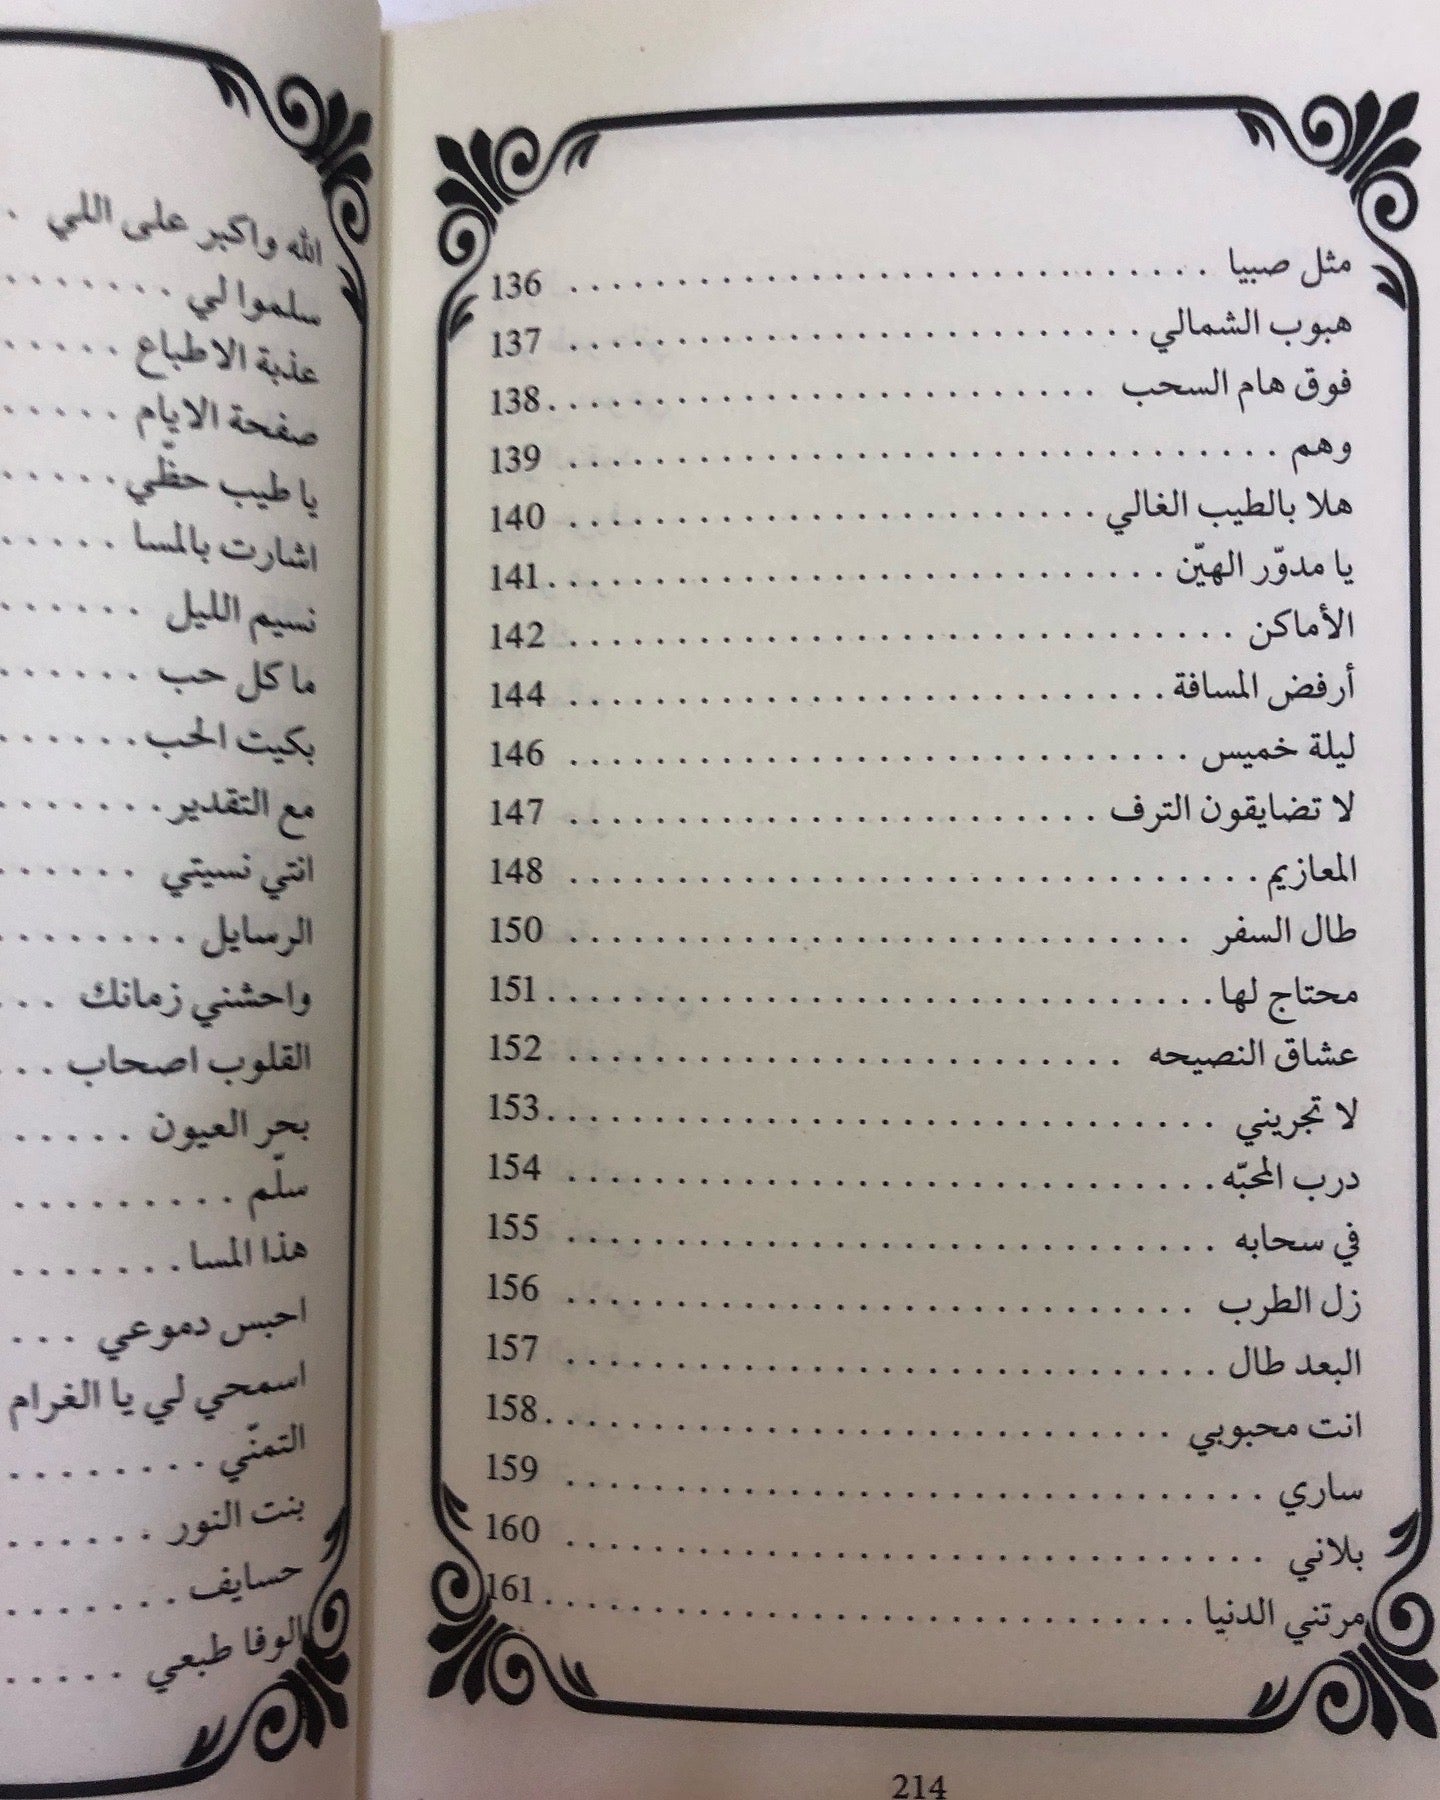 مثل صبيا . . . . . . . . . . . . . . . . . . . . . . . . . . . . . 136
هبوب الشمالي . . . . . . . . . . . . . . . . . . . . . . . . . . 137
فوق هام السحب . . . . . . . . . . . . . . . . . . . . . . . . . 138
وهم . . . . . . . . . . . . . . . . . . . . . . . . . . . . . . . . 139
هلا بالطيب الغالي . . . . . . . . . . . . . . . . . . . . . . . . 140
يا مدوّر الهيّن . . . . . . . . . . . . . . . . . . . . . . . . . . . 141
الأماكن . . . . . . . . . . . . . . . . . . . . . . . . . . . . . . 142
أرفض المسافة . . . . . . . . . . . . . . . . . . . . . . . . . . 144
ليلة خميس . . . . . . . . . . . . . . . . . . . . . . . . . . . . 146
لا تضايقون الترف . . . . . . . . . . . . . . . . . . . . . . . . 147
المعازيم . . . . . . . . . . . . . . . . . . . . . . . . . . . . . . 148
طال السفر . . . . . . . . . . . . . . . . . . . . . . . . . . . . 150
محتاج لها . . . . . . . . . . . . . . . . . . . . . . . . . . . . . 151
عشاق النصيحه . . . . . . . . . . . . . . . . . . . . . . . . . 152
لا تجريني . . . . . . . . . . . . . . . . . . . . . . . . . . . . . 153
درب المحبّه . . . . . . . . . . . . . . . . . . . . . . . . . . . . 154
في سحابه . . . . . . . . . . . . . . . . . . . . . . . . . . . . . 155
زل الطرب . . . . . . . . . . . . . . . . . . . . . . . . . . . . 156
البعد طال . . . . . . . . . . . . . . . . . . . . . . . . . . . . . 157
انت محبوبي . . . . . . . . . . . . . . . . . . . . . . . . . . . 158
ساري . . . . . . . . . . . . . . . . . . . . . . . . . . . . . . . 159
بلاني . . . . . . . . . . . . . . . . . . . . . . . . . . . . . . . 160
مرتني الدنيا . . . . . . . . . . . . . . . . . . . . . . . . . . . . 161
214
الله واكبر على اللي .
سلموا لي . . . . . . . .
عذبة الاطباع . . . . . .
صفحة الايام . . . . . .
يا طيب حظّي . . . . . .
اشارت بالمسا . . . . . .
نسيم الليل . . . . . .
ما كل حب . . . . . .
بكيت الحب . . . . . . .
مع التقدير . . . . . . . .
انتي نسيتي . . . . . .
الرسايل . . . . . . . .
واحشني زمانك . . .
القلوب اصحاب . . .
بحر العيون . . . . .
سلّم . . . . . . . . .
هذا المسا . . . . . . .
احبس دموعي . . .
اسمحي لي يا الغرام
التمنّي . . . . . . . .
بنت النور . . . . . .
حسايف . . . . . . .
الوفا طبعي . . . . .